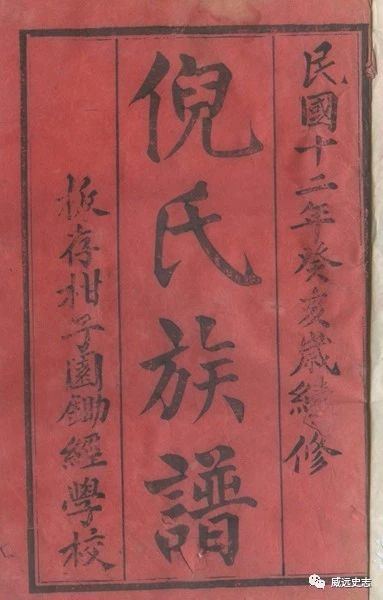 民國十二年癸亥歲續修
倪氏族譜
板存柑子園鋤經學校
威远史志